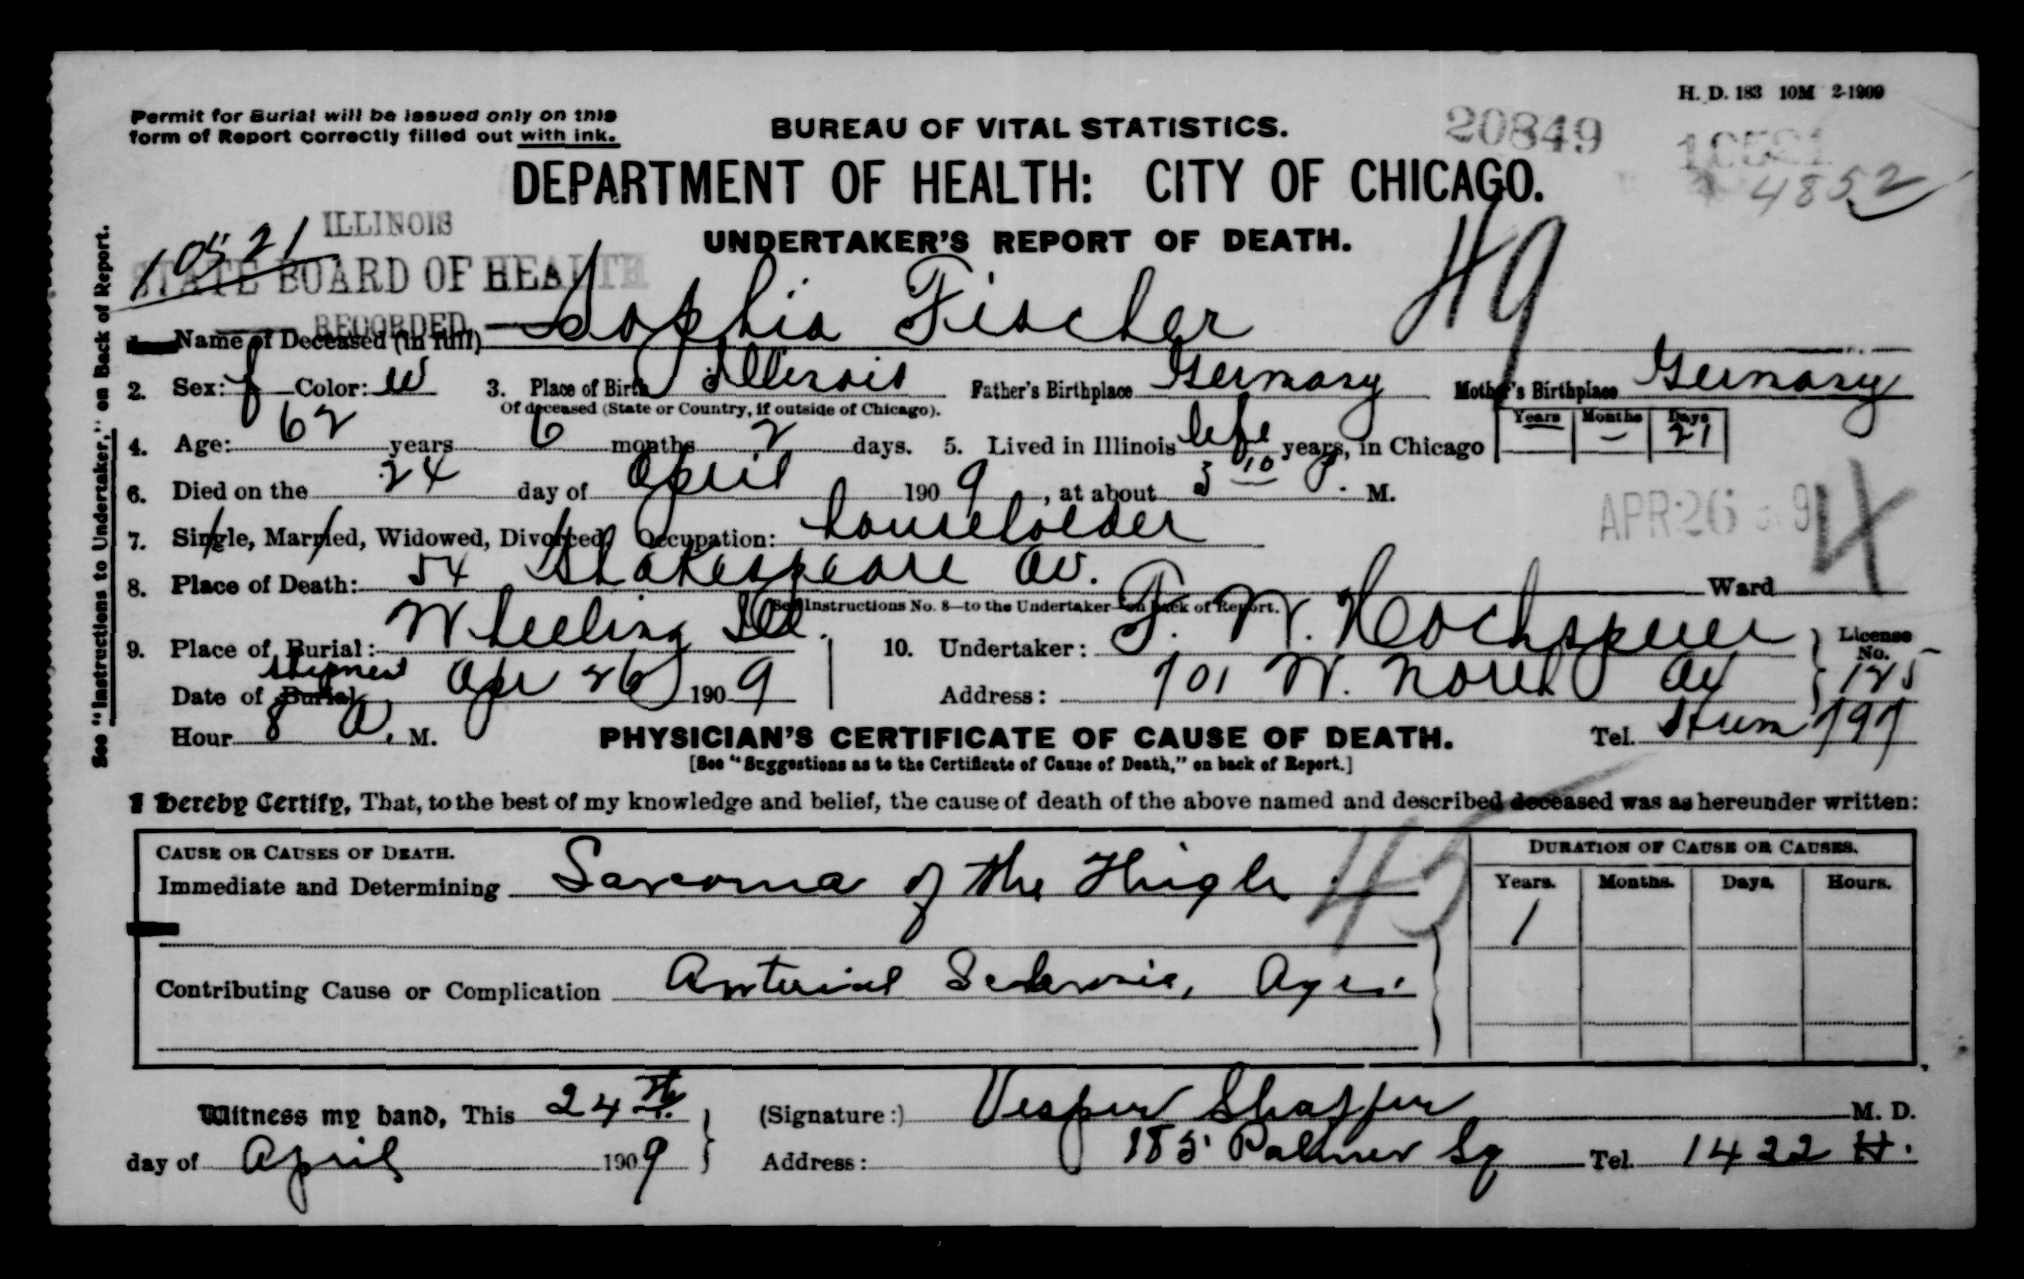 H. D. 183 10M 2-1909
Permit for Burial will be issued only on this
form of Report correctly filled out with ink.
BUREAU OF VITAL STATISTICS.
20849
10521
4852
DEPARTMENT OF HEALTH: CITY OF CHICAGO.
10521
ILLINOIS
STATE BOARD OF HEALTH
RECORDED
UNDERTAKER'S REPORT OF DEATH.
49
See "Instructions to Undertaker," on Back of Report.
1. Name of Deceased (in full) Sophia Fischer
2. Sex: f Color: W 3. Place of Birth Illinois Father's Birthplace Germany Mother's Birthplace Germany
Of deceased (State or Country, if outside of Chicago).
Years Months Days
4. Age: 62 years 6 months 2 days. 5. Lived in Illinois life years, in Chicago — — 21
6. Died on the 24 day of April 1909, at about 3 10 P. M.
APR 26 9
4
7. Single, Married, Widowed, Divorced Occupation: householder
8. Place of Death: 54 Shakespeare Av. Ward
See Instructions No. 8—to the Undertaker—on back of Report.
9. Place of Burial: Wheeling Ill. 10. Undertaker: F. W. License No. 125
Date of Burial shipment Apr 26 1909 Address: 701 W. North Av
Hour 8 A. M. Tel. Hum 797
PHYSICIAN'S CERTIFICATE OF CAUSE OF DEATH.
[See "Suggestions as to the Certificate of Cause of Death," on back of Report.]
I hereby Certify, That, to the best of my knowledge and belief, the cause of death of the above named and described deceased was as hereunder written:
CAUSE OR CAUSES OF DEATH. DURATION OF CAUSE OR CAUSES.
Immediate and Determining Sarcoma of the Thigh 45 Years. Months. Days. Hours.
1
Contributing Cause or Complication Arterial Sclerosis, Age.
Witness my hand, This 24th (Signature:) Vesper Shaffer M. D.
day of April 1909 Address: 185 Palmer Sq Tel. 1422 H.